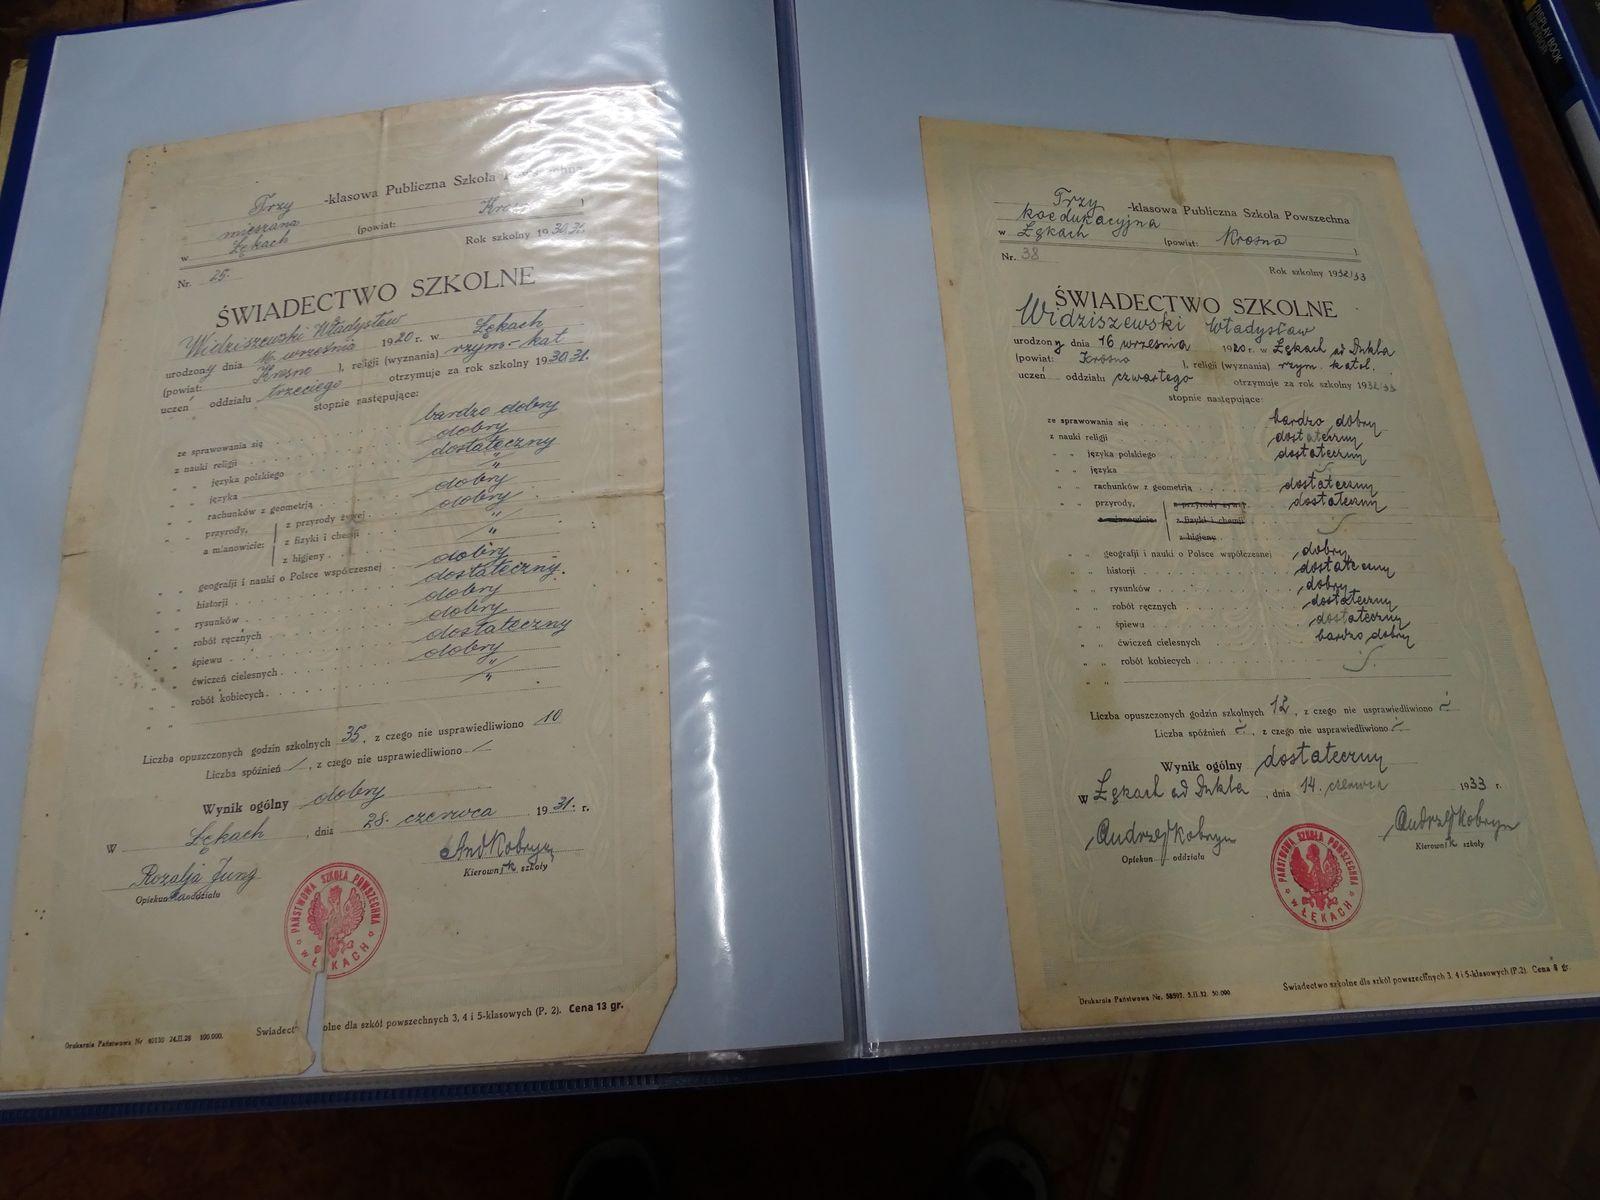 Trzy -klasowa Publiczna Szkoła Powszechna
mieszana
w Łękach (powiat: Krosno )
Rok szkolny 1930/31.
Nr. 25.
ŚWIADECTWO SZKOLNE
Widziszewski Władysław
urodzony dnia 16 września 1920 r. w Łękach
(powiat: Krosno ), religji (wyznania) rzym-kat
uczeń oddziału trzeciego otrzymuje za rok szkolny 1930/31.
stopnie następujące:
ze sprawowania się bardzo dobry
z nauki religji dobry
" " języka polskiego dostateczny
" " języka "
" " rachunków z geometrją dobry
" " przyrody, z przyrody żywej dobry
a mianowicie: z fizyki i chemji "
z higjeny
" " geografji i nauki o Polsce współczesnej dobry
" " historji dostateczny.
" " rysunków dobry
" " robót ręcznych dobry
" " śpiewu dostateczny
" " ćwiczeń cielesnych dobry
" " robót kobiecych "
" "
Liczba opuszczonych godzin szkolnych 35, z czego nie usprawiedliwiono 10
Liczba spóźnień /, z czego nie usprawiedliwiono /
Wynik ogólny dobry
W Łękach, dnia 28. czerwca 1931. r.
Rozalja Jung
Opiekun oddziału
AndKobryn
Kierownik szkoły
PAŃSTWOWA SZKOŁA POWSZECHNA
w ŁĘKACH
Świadect olne dla szkół powszechnych 3, 4 i 5-klasowych (P. 2). Cena 13 gr.
Drukarnia Państwowa Nr 24.II.28 100.000.
Trzy -klasowa Publiczna Szkoła Powszechna
koedukacyjna
w Łękach (powiat: Krosno )
Nr. 38
Rok szkolny 1932/33
ŚWIADECTWO SZKOLNE
Widziszewski Władysław
urodzony dnia 16 września 1920 r. w Łękach ad Dukla
(powiat: Krosno ), religji (wyznania) rzym. katol.
uczeń oddziału czwartego otrzymuje za rok szkolny 1932/33
stopnie następujące:
ze sprawowania się bardzo dobry
z nauki religji dostateczny
" " języka polskiego dostateczny
" " języka
" " rachunków z geometrją dostateczny
" " przyrody, z przyrody żywej dostateczny
a mianowicie: z fizyki i chemji
z higjeny
" " geografji i nauki o Polsce współczesnej dobry
" " historji dostateczny
" " rysunków dobry
" " robót ręcznych dostateczny
" " śpiewu dostateczny
" " ćwiczeń cielesnych bardzo dobry
" " robót kobiecych
" "
Liczba opuszczonych godzin szkolnych 12, z czego nie usprawiedliwiono
Liczba spóźnień, z czego nie usprawiedliwiono
Wynik ogólny dostateczny
W Łękach ad Dukla, dnia 14. czerwca 1933 r.
Andrzej Kobryn
Opiekun oddziału
Andrzej Kobryn
Kierownik szkoły
PAŃSTWOWA SZKOŁA POWSZECHNA
w ŁĘKACH
Drukarnia Państwowa Nr. 58597. 5.II.32. 50.000
Świadectwo szkolne dla szkół powszechnych 3, 4 i 5-klasowych (P.2). Cena 8 gr.
DISPLAY BOOK
SUPERIOR